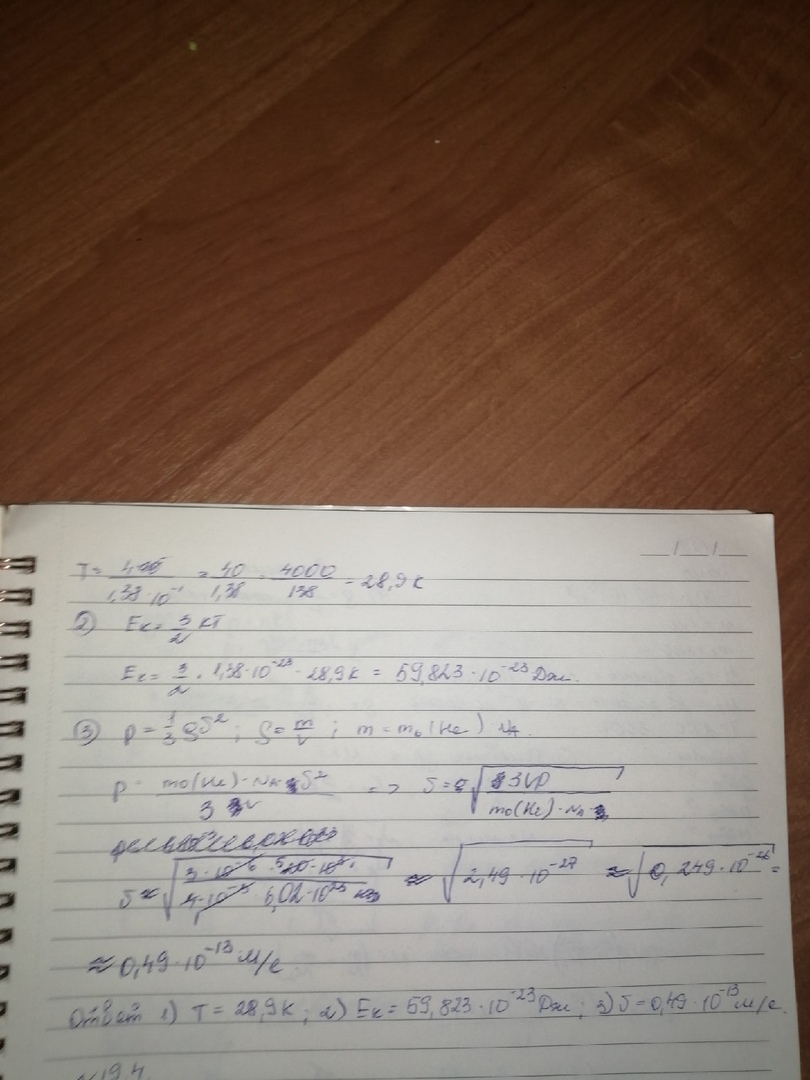 T = 400 / 1,38·10⁻¹ = 40 / 1,38 = 4000 / 138 = 28,9 К
2) Eк = 3/2 кТ
Eк = 3/2 · 1,38·10⁻²³ · 28,9 К = 59,823·10⁻²³ Дж.
3) p = 1/3 ρ υ² ; ρ = m/V ; m = m₀(He) · NA.
p = m₀(He)·NA υ² / 3V => υ = √ 3Vp / m₀(He)·NA
≈ √ 2,49·10⁻²⁷ ≈ √ 0,249·10⁻²⁶ =
≈ 0,49·10⁻¹³ м/с
Ответ 1) T = 28,9 К ; 2) Eк = 59,823·10⁻²³ Дж ; 3) υ = 0,49·10⁻¹³ м/с.